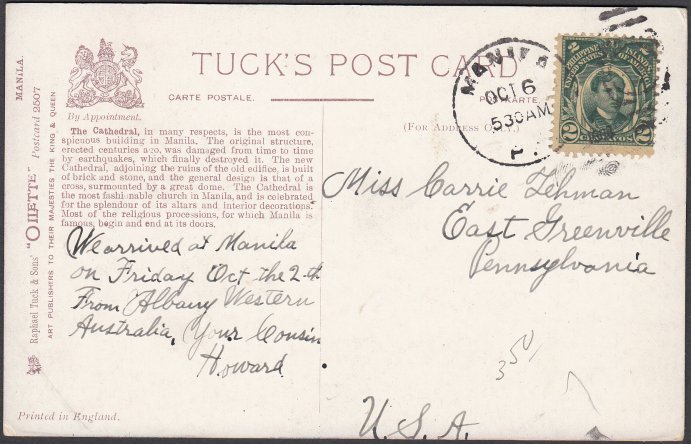 TUCK'S POST CARD
CARTE POSTALE.
(FOR ADDRESS ONLY.)
By Appointment.
The Cathedral, in many respects, is the most con-
spicuous building in Manila. The original structure,
erected centuries ago, was damaged from time to time
by earthquakes, which finally destroyed it. The new
Cathedral, adjoining the ruins of the old edifice, is built
of brick and stone, and the general design is that of a
cross, surmounted by a great dome. The Cathedral is
the most fashionable church in Manila, and is celebrated
for the splendour of its altars and interior decorations.
Most of the religious processions, for which Manila is
famous, begin and end at its doors.
We arrived at Manila
on Friday Oct the 2-th
From Albany Western
Australia, Your Cousin
Howard
MANILA
OCT 6
530AM
P.
2
PHILIPPINE ISLANDS
UNITED STATES OF AMERICA
2 CENTAVOS 2
Miss Carrie Lehman
East Greenville
Pennsylvania
U.S.A.
350
MANILA.
Raphael Tuck & Sons' "OILETTE" Postcard 2507
ART PUBLISHERS TO THEIR MAJESTIES THE KING & QUEEN
Printed in England.